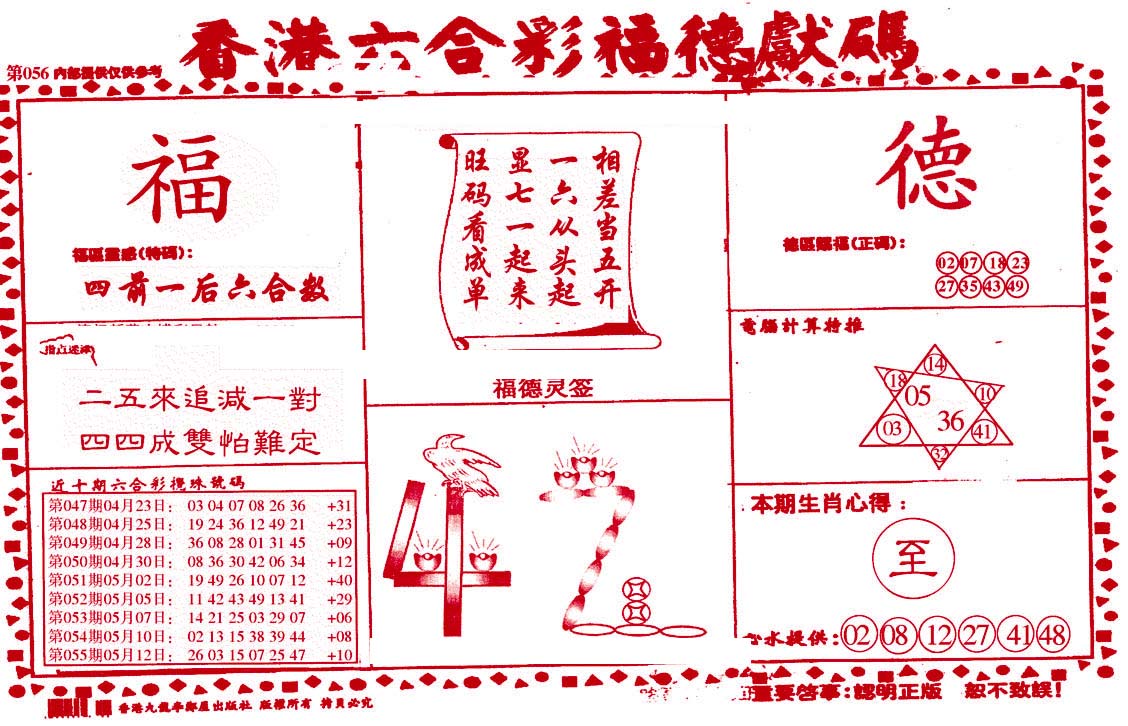 香港六合彩福德獻碼
第056 內部提供仅供参考
福
福區靈感(特碼):
四前一后六合数
二五來追减一對
四四成雙怕難定
近十期六合彩攪珠號碼
第047期04月23日: 03 04 07 08 26 36 +31
第048期04月25日: 19 24 36 12 49 21 +23
第049期04月28日: 36 08 28 01 31 45 +09
第050期04月30日: 08 36 30 42 06 34 +12
第051期05月02日: 19 49 26 10 07 12 +40
第052期05月05日: 11 42 43 49 13 41 +29
第053期05月07日: 14 21 25 03 29 07 +06
第054期05月10日: 02 13 15 38 39 44 +08
第055期05月12日: 26 03 15 07 25 47 +10
相差当五开
一六从头起
显七一起来
旺码看成单
福德灵签
德
德區賜福(正碼):
02 07 18 23
27 35 43 49
電腦計算特推
14
18
05
10
03
36
41
32
本期生肖心得:
至
心水提供: 02 08 12 27 41 48
重要啓事:認明正版 恕不致誤!
版權所有 拷貝必究